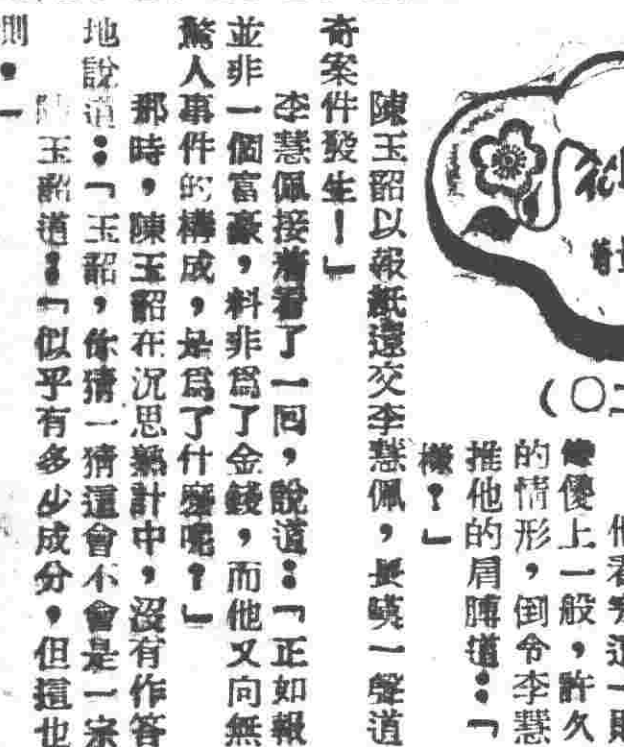 他看完這一則
優上一般，許久
的情形，倒令李慧
推他的肩膊道：「
樣？」
（二〇
陳玉韶以報紙還交李慧佩，長嘆一聲道
奇案件發生！」
李慧佩接着看了一回，說道：「正如報
並非一個富豪，料非爲了金錢，而他又向無
驚人事件的構成，是爲了什麼呢？」
那時，陳玉韶在沉思熟計中，沒有作答
地說道：「玉韶，你猜一猜這會不會是一宗
陳玉韶道：「似乎有多少成分，但這也
則。」